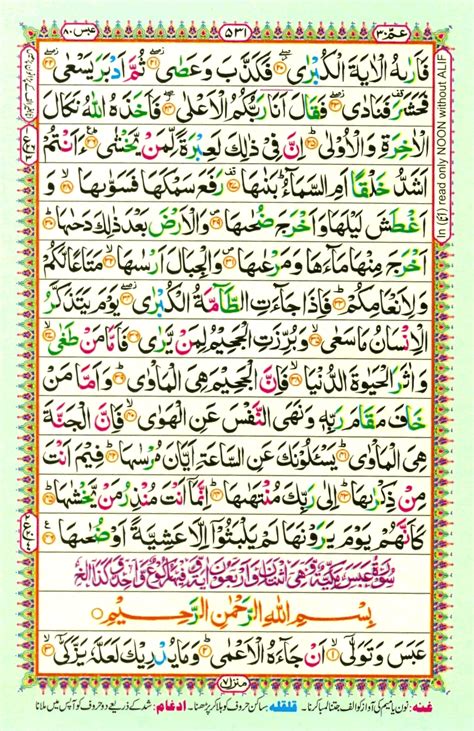 عمّ ٣٠
٥٣١
عبس ٨٠
فَاَرٰىهُ الْاٰيَةَ الْكُبْرٰى ﴿٢٠﴾ فَكَذَّبَ وَعَصٰى ﴿٢١﴾ ثُمَّ اَدْبَرَ يَسْعٰى ﴿٢٢﴾
فَحَشَرَ فَنَادٰى ﴿٢٣﴾ فَقَالَ اَنَا رَبُّكُمُ الْاَعْلٰى ﴿٢٤﴾ فَاَخَذَهُ اللّٰهُ نَكَالَ
الْاٰخِرَةِ وَالْاُوْلٰى ﴿٢٥﴾ اِنَّ فِيْ ذٰلِكَ لَعِبْرَةً لِّمَنْ يَّخْشٰى ﴿٢٦﴾ ءَاَنْتُمْ
اَشَدُّ خَلْقًا اَمِ السَّمَآءُ بَنٰىهَا ﴿٢٧﴾ رَفَعَ سَمْكَهَا فَسَوّٰىهَا ﴿٢٨﴾ وَ
اَغْطَشَ لَيْلَهَا وَاَخْرَجَ ضُحٰىهَا ﴿٢٩﴾ وَالْاَرْضَ بَعْدَ ذٰلِكَ دَحٰىهَا ﴿٣٠﴾
اَخْرَجَ مِنْهَا مَآءَهَا وَمَرْعٰىهَا ﴿٣١﴾ وَالْجِبَالَ اَرْسٰىهَا ﴿٣٢﴾ مَتَاعًا لَّكُمْ
وَلِاَنْعَامِكُمْ ﴿٣٣﴾ فَاِذَا جَآءَتِ الطَّآمَّةُ الْكُبْرٰى ﴿٣٤﴾ يَوْمَ يَتَذَكَّرُ
الْاِنْسَانُ مَا سَعٰى ﴿٣٥﴾ وَبُرِّزَتِ الْجَحِيْمُ لِمَنْ يَّرٰى ﴿٣٦﴾ فَاَمَّا مَنْ طَغٰى ﴿٣٧﴾
وَاٰثَرَ الْحَيٰوةَ الدُّنْيَا ﴿٣٨﴾ فَاِنَّ الْجَحِيْمَ هِيَ الْمَاْوٰى ﴿٣٩﴾ وَاَمَّا مَنْ
خَافَ مَقَامَ رَبِّهٖ وَنَهَى النَّفْسَ عَنِ الْهَوٰى ﴿٤٠﴾ فَاِنَّ الْجَنَّةَ
هِيَ الْمَاْوٰى ﴿٤١﴾ يَسْـَٔلُوْنَكَ عَنِ السَّاعَةِ اَيَّانَ مُرْسٰىهَا ﴿٤٢﴾ فِيْمَ اَنْتَ
مِنْ ذِكْرٰىهَا ﴿٤٣﴾ اِلٰى رَبِّكَ مُنْتَهٰىهَا ﴿٤٤﴾ اِنَّمَآ اَنْتَ مُنْذِرُ مَنْ يَّخْشٰىهَا ﴿٤٥﴾
كَاَنَّهُمْ يَوْمَ يَرَوْنَهَا لَمْ يَلْبَثُوْٓا اِلَّا عَشِيَّةً اَوْ ضُحٰىهَا ﴿٤٦﴾
سُوْرَةُ عَبَسَ مَكِّيَّةٌ وَّهِيَ اثْنَتَانِ وَاَرْبَعُوْنَ اٰيَةً وَّفِيْهَا رُكُوْعٌ وَّاحِدٌ
بِسْمِ اللّٰهِ الرَّحْمٰنِ الرَّحِيْمِ
عَبَسَ وَتَوَلّٰٓى ﴿١﴾ اَنْ جَآءَهُ الْاَعْمٰى ﴿٢﴾ وَمَا يُدْرِيْكَ لَعَلَّهٗ يَزَّكّٰٓى ﴿٣﴾
منزل ٧
In (اَنَا) read only NOON without ALIF
غنه: نون یا میم کی آواز کو الف جتنا لمبا کرنا۔ قلقله: ساکن حروف کو ہلا کر پڑھنا۔ ادغام: شد کے ذریعے دو حروف کو آپس میں ملانا